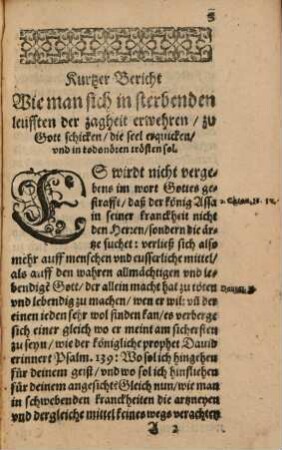 Kurtzer Bericht
Wie man sich in sterbenden
leufften der zagheit erwehren / zu
Gott schicken / die seel erquicken /
vnd in todsnöten trösten sol.
ES wirdt nicht verge-
bens im wort Gottes ge-
strafft / daß der könig Assa
in seiner kranckheit nicht
den Herren / sondern die är-
tze suchet: verließ sich also
mehr auff menschen vnd eusserliche mittel /
als auff den wahren allmächtigen vnd le-
bendigē Gott / der allein macht hat zu töten
vnd lebendig zu machen / wen er wil: vñ der
einen ieden sehr wol finden kan / es verberge
sich einer gleich wo er meint am sichersten
zu seyn / wie der königliche prophet Dauid
erinnert Psalm. 139: Wo sol ich hingehen
für deinem geist / vnd wo sol ich hinfliehen
für deinem angesicht? Gleich nun / wie man
in schwebenden kranckheiten die artzneyen
vnd dergleiche mittel keines wegs verachten
A 2